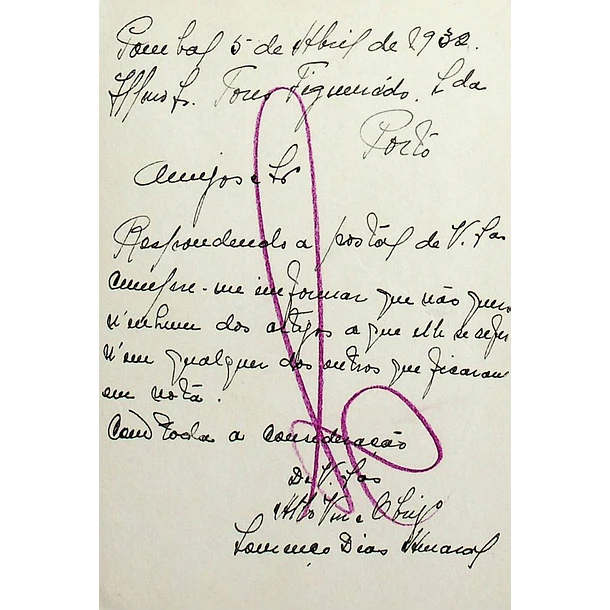 Pombal 5 de Abril de 1932.
Illmos Srs. Figueirêdo. Lda
Porto
Amigos e Sr
Respondendo a postal de V. Sas
cumpre-me informar que não quero
n'enhum dos artigos a que elle se refer
n'em qualquer dos outros que ficaram
em nota.
Com toda a consideração
De V. Sas
Atto Vnr e Obrigo
Lourenço Dias Amaral